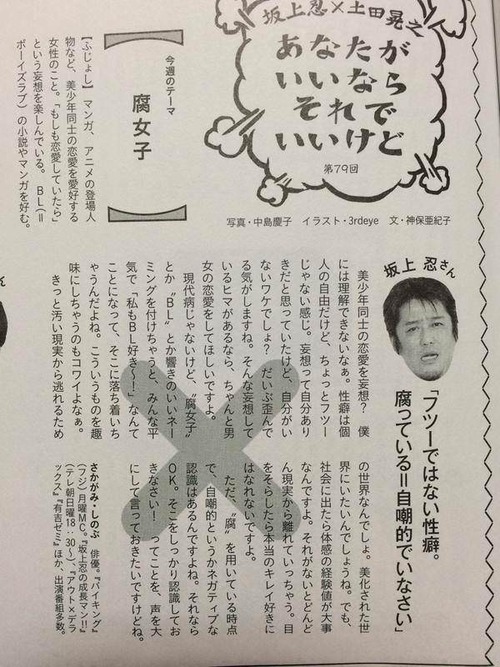 坂上忍×土田晃之
あなたが
いいなら
それで
いいけど
第79回
写真・中島慶子 イラスト・3rdeye 文・神保亜紀子
今週のテーマ
腐女子
【ふじょし】 マンガ、アニメの登場人
物など、美少年同士の恋愛を愛好する
女性のこと。「もしも恋愛していたら」
という妄想を楽しんでいる。BL(=
ボーイズラブ)の小説やマンガを好む。
坂上 忍さん
「フツーではない性癖。
腐っている=自嘲的でいなさい」
美少年同士の恋愛を妄想? 僕
には理解できないなぁ。性癖は個
人の自由だけど、ちょっとフツー
じゃない感じ。妄想って自分あり
きだと思っていたけど、自分がい
ないワケでしょう。だいぶ歪んで
る気がしますね。そんな妄想して
いるヒマがあるなら、ちゃんと男
女の恋愛をしてほしいですよ。
現代病じゃないけど、“腐女子”
とか“BL”とか響きのいいネー
ミングを付けちゃうと、みんな平
気で「私もBL好き〜!」なんて
ことになって、そこに落ち着いち
ゃうんだよね。こういうものを趣
味にしちゃうのもコワイよなぁ。
きっと汚い現実から逃れるため
の世界なんでしょ。美化された世
界にいたいんでしょうね。でも、
社会に出たら体感の経験値が大事
なんですよ。それがないとどんど
ん現実から離れていっちゃう。目
をそらしたら本当のキレイ好きに
はなれないですよ。
ただ、“腐”を用いている時点
で、自嘲的というかネガティブな
認識はあるんですよね。それなら
OK。そこをしっかり認識してお
きなさい!ってことを、声を大
にして言っておきたいですけどね。
さかがみ・しのぶ 俳優。『バイキング』
(フジ)月曜MC。『坂上忍の成長マン!!』
(テレ朝日曜18:30〜)、『アウト×デラ
ックス』『有吉ゼミ』ほか、出演番組多数。